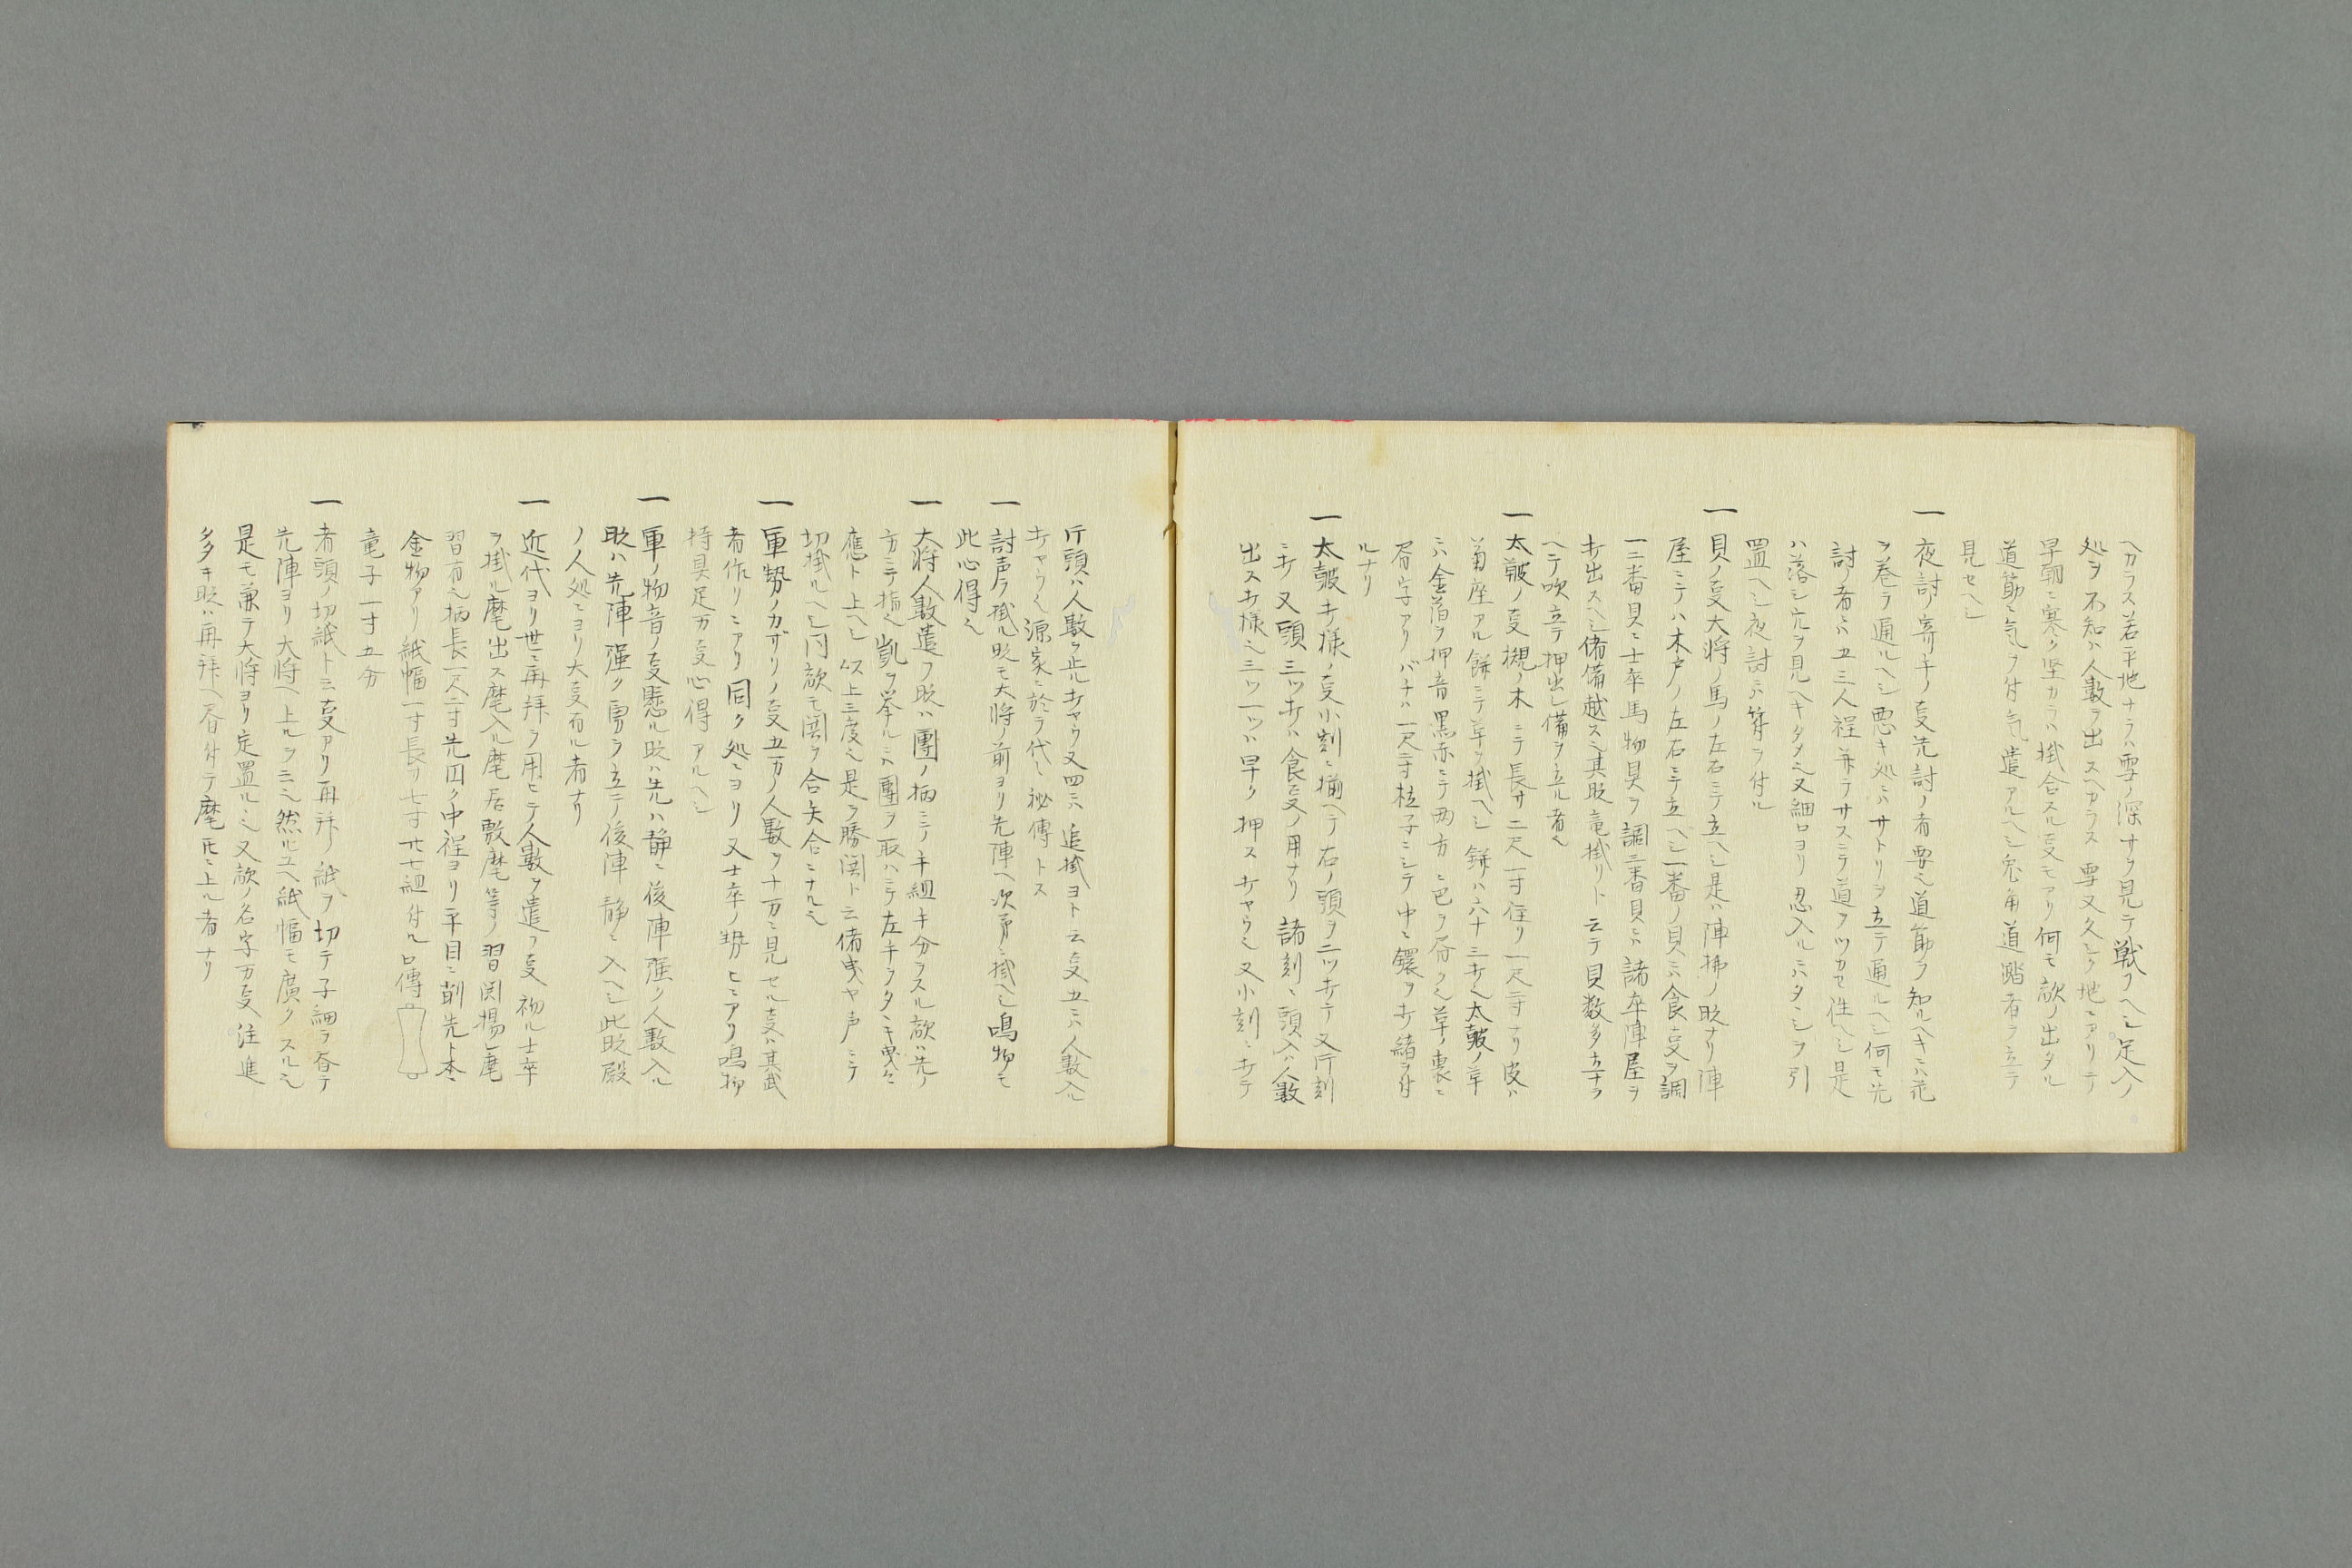 ヘカラス若平地ナラハ雪ノ深サヲ見テ戦フヘシ足入ノ
処ヲ不知ハ人数ヲ出スヘカラス雪又久シク地ニアリテ
早朝ニ寒ク堅カラハ掛合スル叓モアリ何モ敵ノ出タル
道筋ニ気ヲ付気遣アルヘシ兎角道蹈者ヲ立テ
見セヘシ
一 夜討ノ寄手ノ叓先討ノ者要也道筋ヲ知ルヘキニハ花
ヲ巻テ通ルヘシ悪キ処ニハサトリヲ立テ通ルヘシ何モ先
討ノ者ニハ五三人程
ハ落シ穴ヲ見ヘキタメ也又細ロヨリ忍入ルニハタシヲ引
置ヘシ夜討ニハ笄ヲ付ル
一 貝ノ叓大将ノ馬ノ左右ニテ立ヘシ是ハ陣拂ノ時ナリ陣
屋ニテハ木戸ノ左右ニテ立ヘシ一番ノ貝ニハ食叓ヲ調
一二番貝ニ士卒馬物具ヲ調三番貝ニハ諸卒陣屋ヲ
打出スヘシ備備越ス也其時竜掛リト云テ貝数多立ヲ
ヘテ吹立テ押出シ備ヲ立ル者也
一 太皷ノ叓槻ノ木ニテ長サ二尺一寸径リ一尺二寸ナリ皮ハ
菊座アル餅ニテ革ヲ掛ヘシ餅ハ六十三打也太皷ノ革
ニハ金箔ヲ押青黒赤ニテ両方ニ巴ヲ昼ク也革ノ裏ニ
昼字アリバチハ一尺二寸枝子ニシテ中ニ鐶ヲ打緒ヲ付
ルナリ
一 太皷打様ノ叓小刻ニ揃ヘテ右ノ頭ヲ二ツ打テ又斤刻
ニ打又頭三ツ打ハ食叓ノ用ナリ諸刻ニ頭入ハ人数
出ス打様也三ツ一ツハ早ク押ス打ヤウ也又小刻ニ打テ
斤頭ハ人数ヲ止打ヤウ又四ニハ追掛ヨト云叓五ニハ人数入ル
打ヤウ也源家ニ於ラ代々秘傳トス
一 討声ヲ掛ル時モ大将ノ前ヨリ先陣ヘ次第ニ掛ヘシ鳴物モ
此心得也
一 大将人数遣フ時ハ團ノ柄ニテ手組手分ヲスル敵ハ先ノ
方ニテ指也凱ヲ挙ルニハ團ヲ取ハニテ左手ヲタヽキ曳々
應ト上ヘシ以上三度也是ヲ勝鬨ト云備曳ヤ声ニテ
切掛ルヘシ同敵モ鬨ヲ合矢合ニナル也
一 軍勢ノカザリノ叓五万ノ人数ヲ十万ニ見セル叓ハ其武
者作リニアリ同ク処ニヨリ又士卒ノ勢ヒニアリ鳴物
持具足万叓心得アルヘシ
一 軍ノ物音ノ叓懸ル時ハ先ハ静ニ後陣強ク人数入ル
時ハ先陣強ク
ノ人処ニヨリ大叓有ル者ナリ
一 近代ヨリ世ニ再拜ヲ用ヒテ人数ヲ遣フ叓初ル士卒
ヲ掛ル麾出ス麾入ル麾居敷麾等ノ習鬨揚ル麾
習有也柄長一尺二寸先四ク中程ヨリ平目ニ削先ト本ニ
金物アリ紙幅一寸長ヲ七寸廿七組付ル口傳
童子一寸五分
一 者頭ノ切紙ト云叓アリ再拜ノ紙ヲ切テ子細ヲ昼テ
先陣ヨリ大将ヘ上ルヲ云也然ルユヘ紙幅モ廣クスル也
是モ兼テ大将ヨリ定置ル也又敵ノ名字万叓注進
多々キ時ハ再拜ヘ昼付テ麾元ニ上ル者ナリ